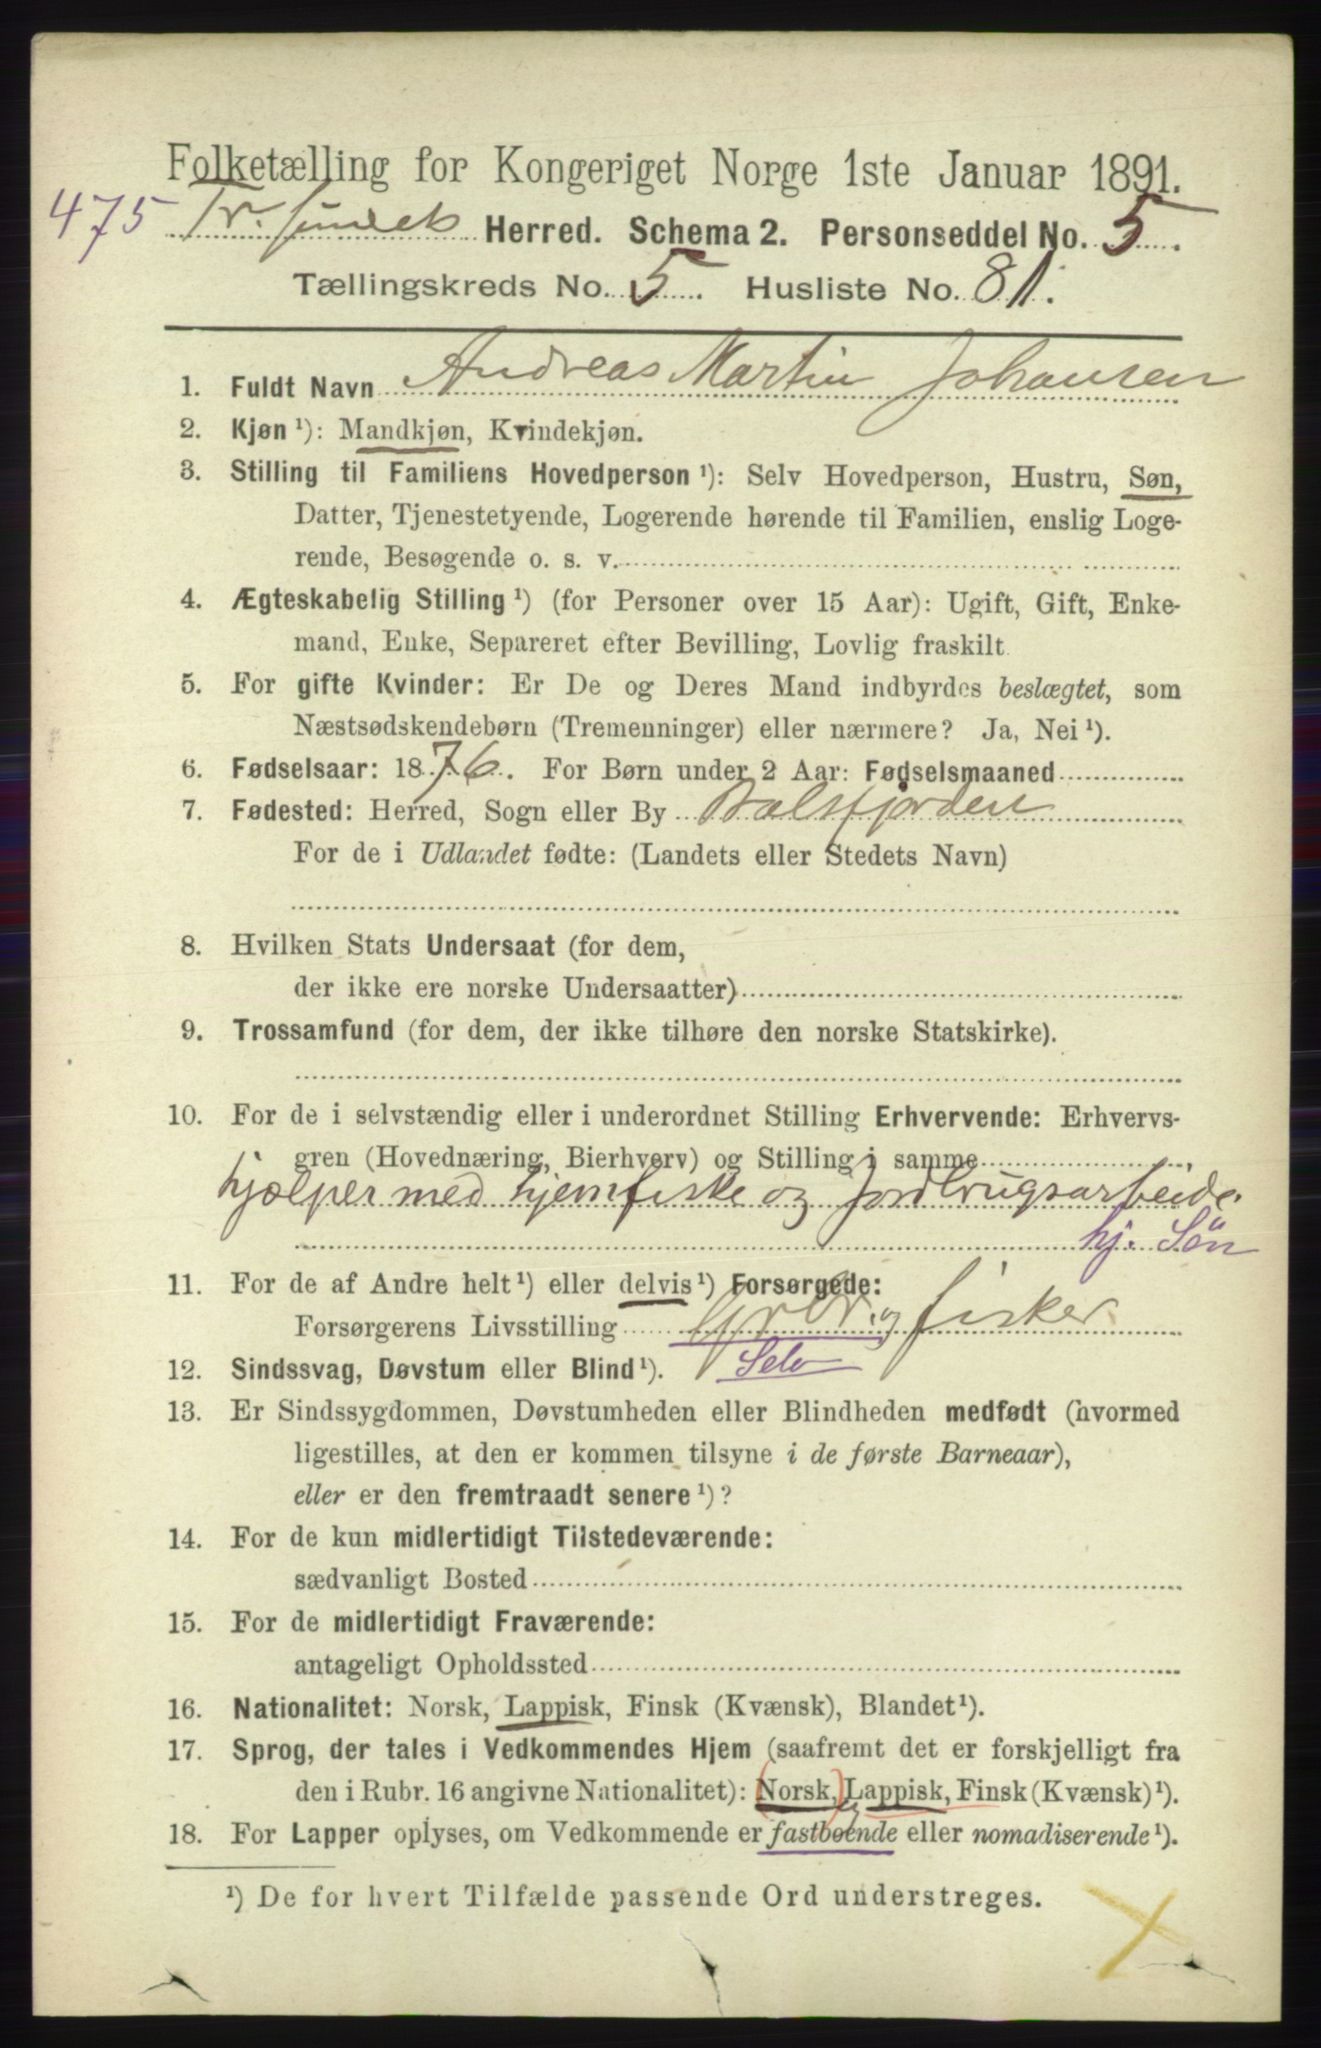 Folketælling for Kongeriget Norge 1ste Januar 1891.
475 Tr. sundets Herred. Schema 2. Personseddel No. 5.
Tællingskreds No. 5. Husliste No. 81.
1. Fuldt Navn Andreas Martin Johansen
2. Kjøn ¹): Mandkjøn, Kvindekjøn.
3. Stilling til Familiens Hovedperson ¹): Selv Hovedperson, Hustru, Søn,
Datter, Tjenestetyende, Logerende hørende til Familien, enslig Loge-
rende, Besøgende o. s. v.
4. Ægteskabelig Stilling ¹) (for Personer over 15 Aar): Ugift, Gift, Enke-
mand, Enke, Separeret efter Bevilling, Lovlig fraskilt
5. For gifte Kvinder: Er De og Deres Mand indbyrdes beslægtet, som
Næstsødskendebørn (Tremenninger) eller nærmere? Ja, Nei ¹).
6. Fødselsaar: 1876. For Børn under 2 Aar: Fødselsmaaned
7. Fødested: Herred, Sogn eller By Balsfjorden
For de i Udlandet fødte: (Landets eller Stedets Navn)
8. Hvilken Stats Undersaat (for dem,
der ikke ere norske Undersaatter)
9. Trossamfund (for dem, der ikke tilhøre den norske Statskirke).
10. For de i selvstændig eller i underordnet Stilling Erhvervende: Erhvervs-
gren (Hovednæring, Bierhverv) og Stilling i samme
hjælper med hjemfiske og Jordbrugsarbeide.
hj. Søn
11. For de af Andre helt ¹) eller delvis ¹) Forsørgede:
Forsørgerens Livsstilling Grbr. og fisker
12. Sindssvag, Døvstum eller Blind ¹). Selv
13. Er Sindssygdommen, Døvstumheden eller Blindheden medfødt (hvormed
ligestilles, at den er kommen tilsyne i de første Barneaar),
eller er den fremtraadt senere ¹)?
14. For de kun midlertidigt Tilstedeværende:
sædvanligt Bosted
15. For de midlertidigt Fraværende:
antageligt Opholdssted
16. Nationalitet: Norsk, Lappisk, Finsk (Kvænsk), Blandet ¹).
17. Sprog, der tales i Vedkommendes Hjem (saafremt det er forskjelligt fra
den i Rubr. 16 angivne Nationalitet): (Norsk,) Lappisk, Finsk (Kvænsk) ¹).
18. For Lapper oplyses, om Vedkommende er fastboende eller nomadiserende ¹).
¹) De for hvert Tilfælde passende Ord understreges.